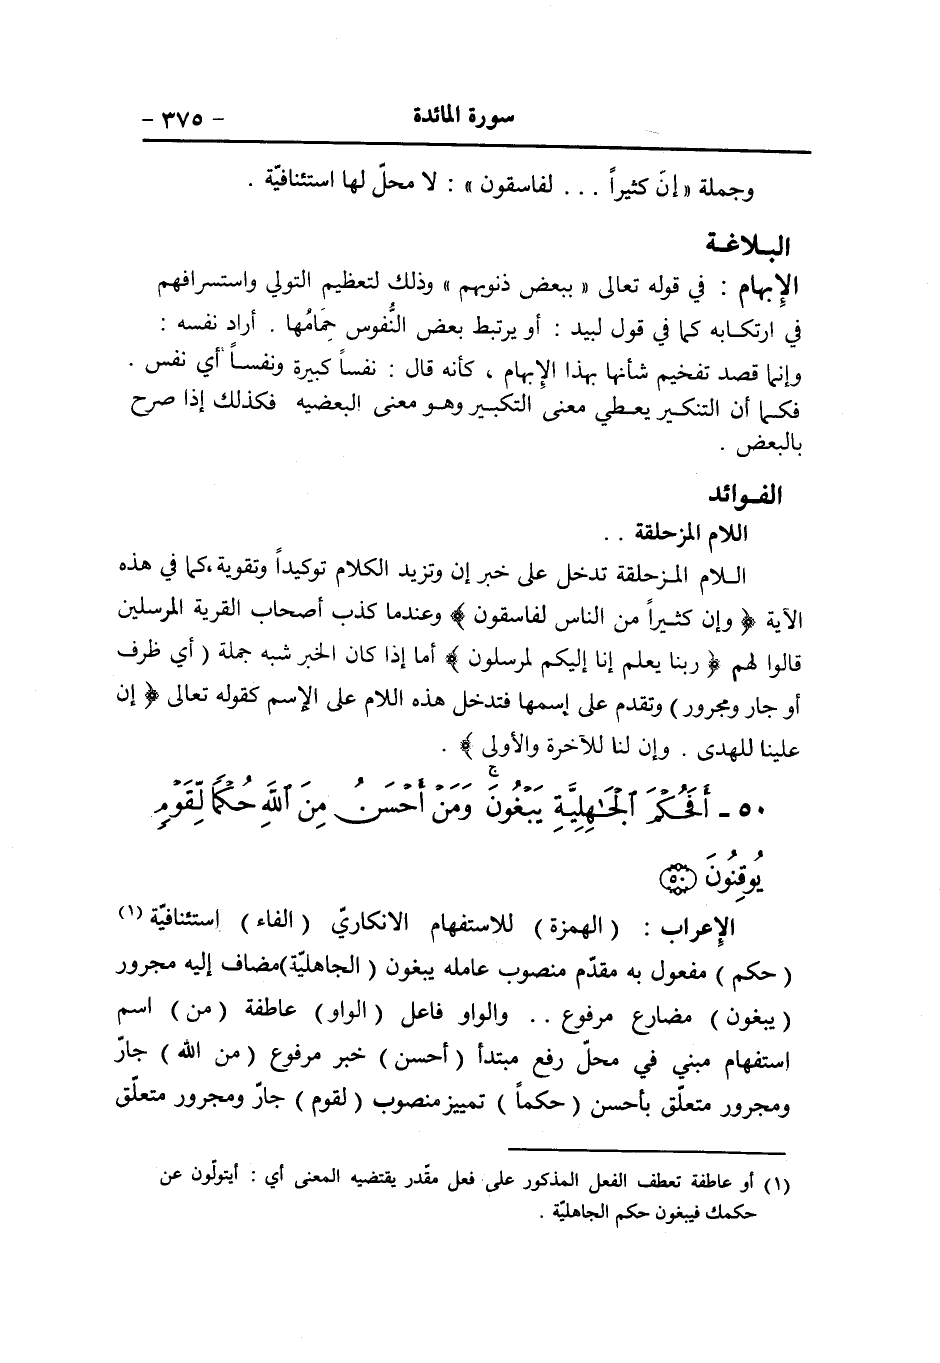 سورة المائدة - ٣٧٥ -
وجملة « إنّ كثيراً ... لفاسقون » : لا محلّ لها استئنافيّة .
البـلاغـة
الإبهام : في قوله تعالى « ببعض ذنوبهم » وذلك لتعظيم التولي واستسرافهم
في ارتكـابه كما في قول لبيد : أو يرتبط بعض النُّفوس حِمَامُها . أراد نفسه :
وإنما قصد تفخيم شأنها بهذا الإبهام ، كأنه قال : نفساً كبيرة ونفسـاً أي نفس .
فكـما أن التنكـير يعـطي معنى التكبـير وهـو معنى البعضيه فكذلك إذا صرح
بالبعض .
الفـوائد
اللام المزحلقة . .
الـلام المـزحلقة تدخل على خبر إن وتزيد الكلام توكيداً وتقوية ،كما في هذه
الآية ﴿ وإن كثـيراً من الناس لفاسقون ﴾ وعندما كذب أصحاب القرية المرسلين
قالوا لهم ﴿ ربنا يعلم إنا إليكم لمرسلون ﴾ أما إذا كان الخبر شبه جملة ( أي ظرف
أو جار ومجرور ) وتقدم على إسمها فتدخل هذه اللام على الإسم كقوله تعالى ﴿ إن
علينا للهدى . وإن لنا للآخرة والأولى ﴾ .
٥٠ - أَفَحُكْمَ ٱلْجَـٰهِلِيَّةِ يَبْغُونَ ۚ وَمَنْ أَحْسَنُ مِنَ ٱللَّهِ حُكْمًا لِّقَوْمٍ
يُوقِنُونَ ﴿٥٠﴾
الإعراب : ( الهمزة ) للاستفهام الانكاريّ ( الفاء ) استئنافيّة (١)
( حكم ) مفعول به مقدّم منصوب عامله يبغون ( الجاهليّة)مضاف إليه مجرور
( يبغون ) مضارع مرفوع .. والواو فاعل ( الواو ) عاطفة ( من ) اسم
استفهام مبني في محلّ رفع مبتدأ ( أحسن ) خبر مرفوع ( من الله ) جارّ
ومجرور متعلّق بأحسن ( حكماً ) تمييز منصوب ( لقوم ) جارّ ومجرور متعلّق
(١) أو عاطفة تعطف الفعل المذكور على فعل مقدّر يقتضيه المعنى أي : أيتولّون عن
حكمك فيبغون حكم الجاهليّة .